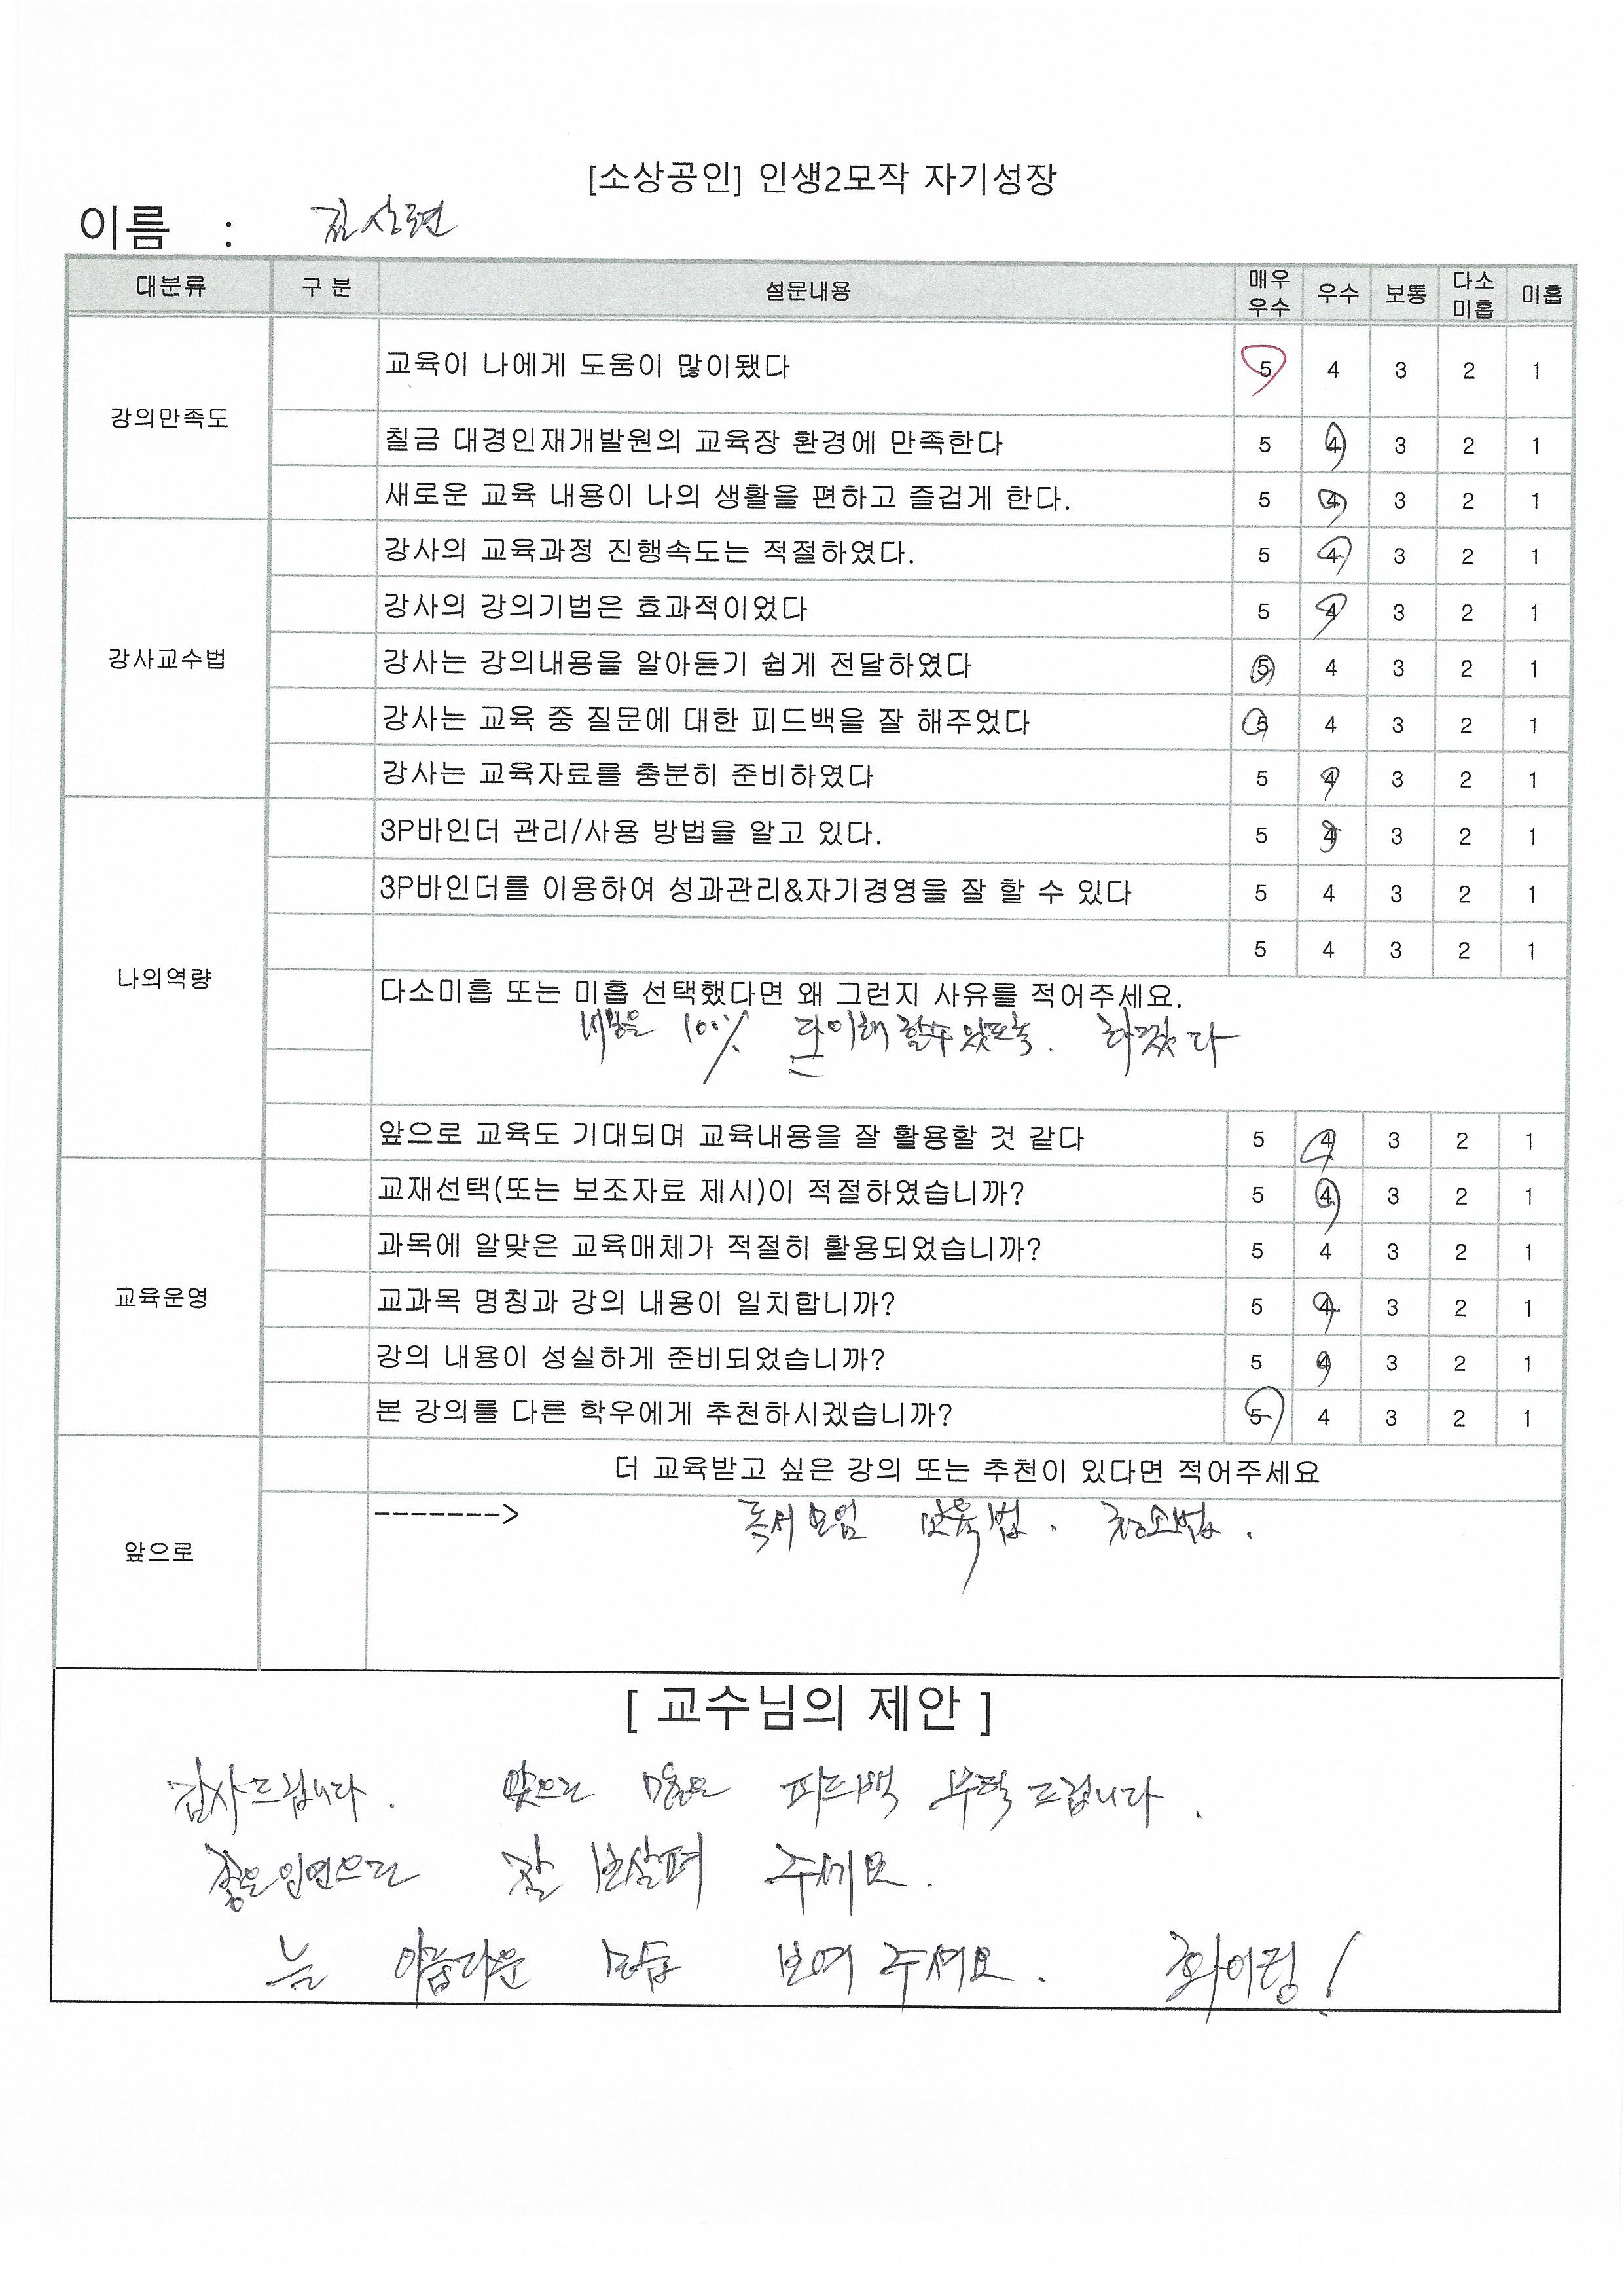 [소상공인] 인생2모작 자기성장
이름 :
대분류 구 분 설문내용 매우 우수 우수 보통 다소 미흡 미흡
강의만족도
교육이 나에게 도움이 많이됐다 5 4 3 2 1
칠금 대경인재개발원의 교육장 환경에 만족한다 5 4 3 2 1
새로운 교육 내용이 나의 생활을 편하고 즐겁게 한다. 5 4 3 2 1
강사교수법
강사의 교육과정 진행속도는 적절하였다. 5 4 3 2 1
강사의 강의기법은 효과적이었다 5 4 3 2 1
강사는 강의내용을 알아듣기 쉽게 전달하였다 5 4 3 2 1
강사는 교육 중 질문에 대한 피드백을 잘 해주었다 5 4 3 2 1
강사는 교육자료를 충분히 준비하였다 5 4 3 2 1
나의역량
3P바인더 관리/사용 방법을 알고 있다. 5 4 3 2 1
3P바인더를 이용하여 성과관리&자기경영을 잘 할 수 있다 5 4 3 2 1
5 4 3 2 1
다소미흡 또는 미흡 선택했다면 왜 그런지 사유를 적어주세요.
내용을 100% 다 이해 할수 있도록. 하겠다
앞으로 교육도 기대되며 교육내용을 잘 활용할 것 같다 5 4 3 2 1
교육운영
교재선택(또는 보조자료 제시)이 적절하였습니까? 5 4 3 2 1
과목에 알맞은 교육매체가 적절히 활용되었습니까? 5 4 3 2 1
교과목 명칭과 강의 내용이 일치합니까? 5 4 3 2 1
강의 내용이 성실하게 준비되었습니까? 5 4 3 2 1
본 강의를 다른 학우에게 추천하시겠습니까? 5 4 3 2 1
앞으로
더 교육받고 싶은 강의 또는 추천이 있다면 적어주세요
-------> 독서모임 교육법. 청소법.
[ 교수님의 제안 ]
감사드립니다. 앞으로 많은 피드백 부탁드립니다.
좋은인연으로 잘 보살펴 주세요.
늘 아름다운 모습 보여 주세요. 화이팅!